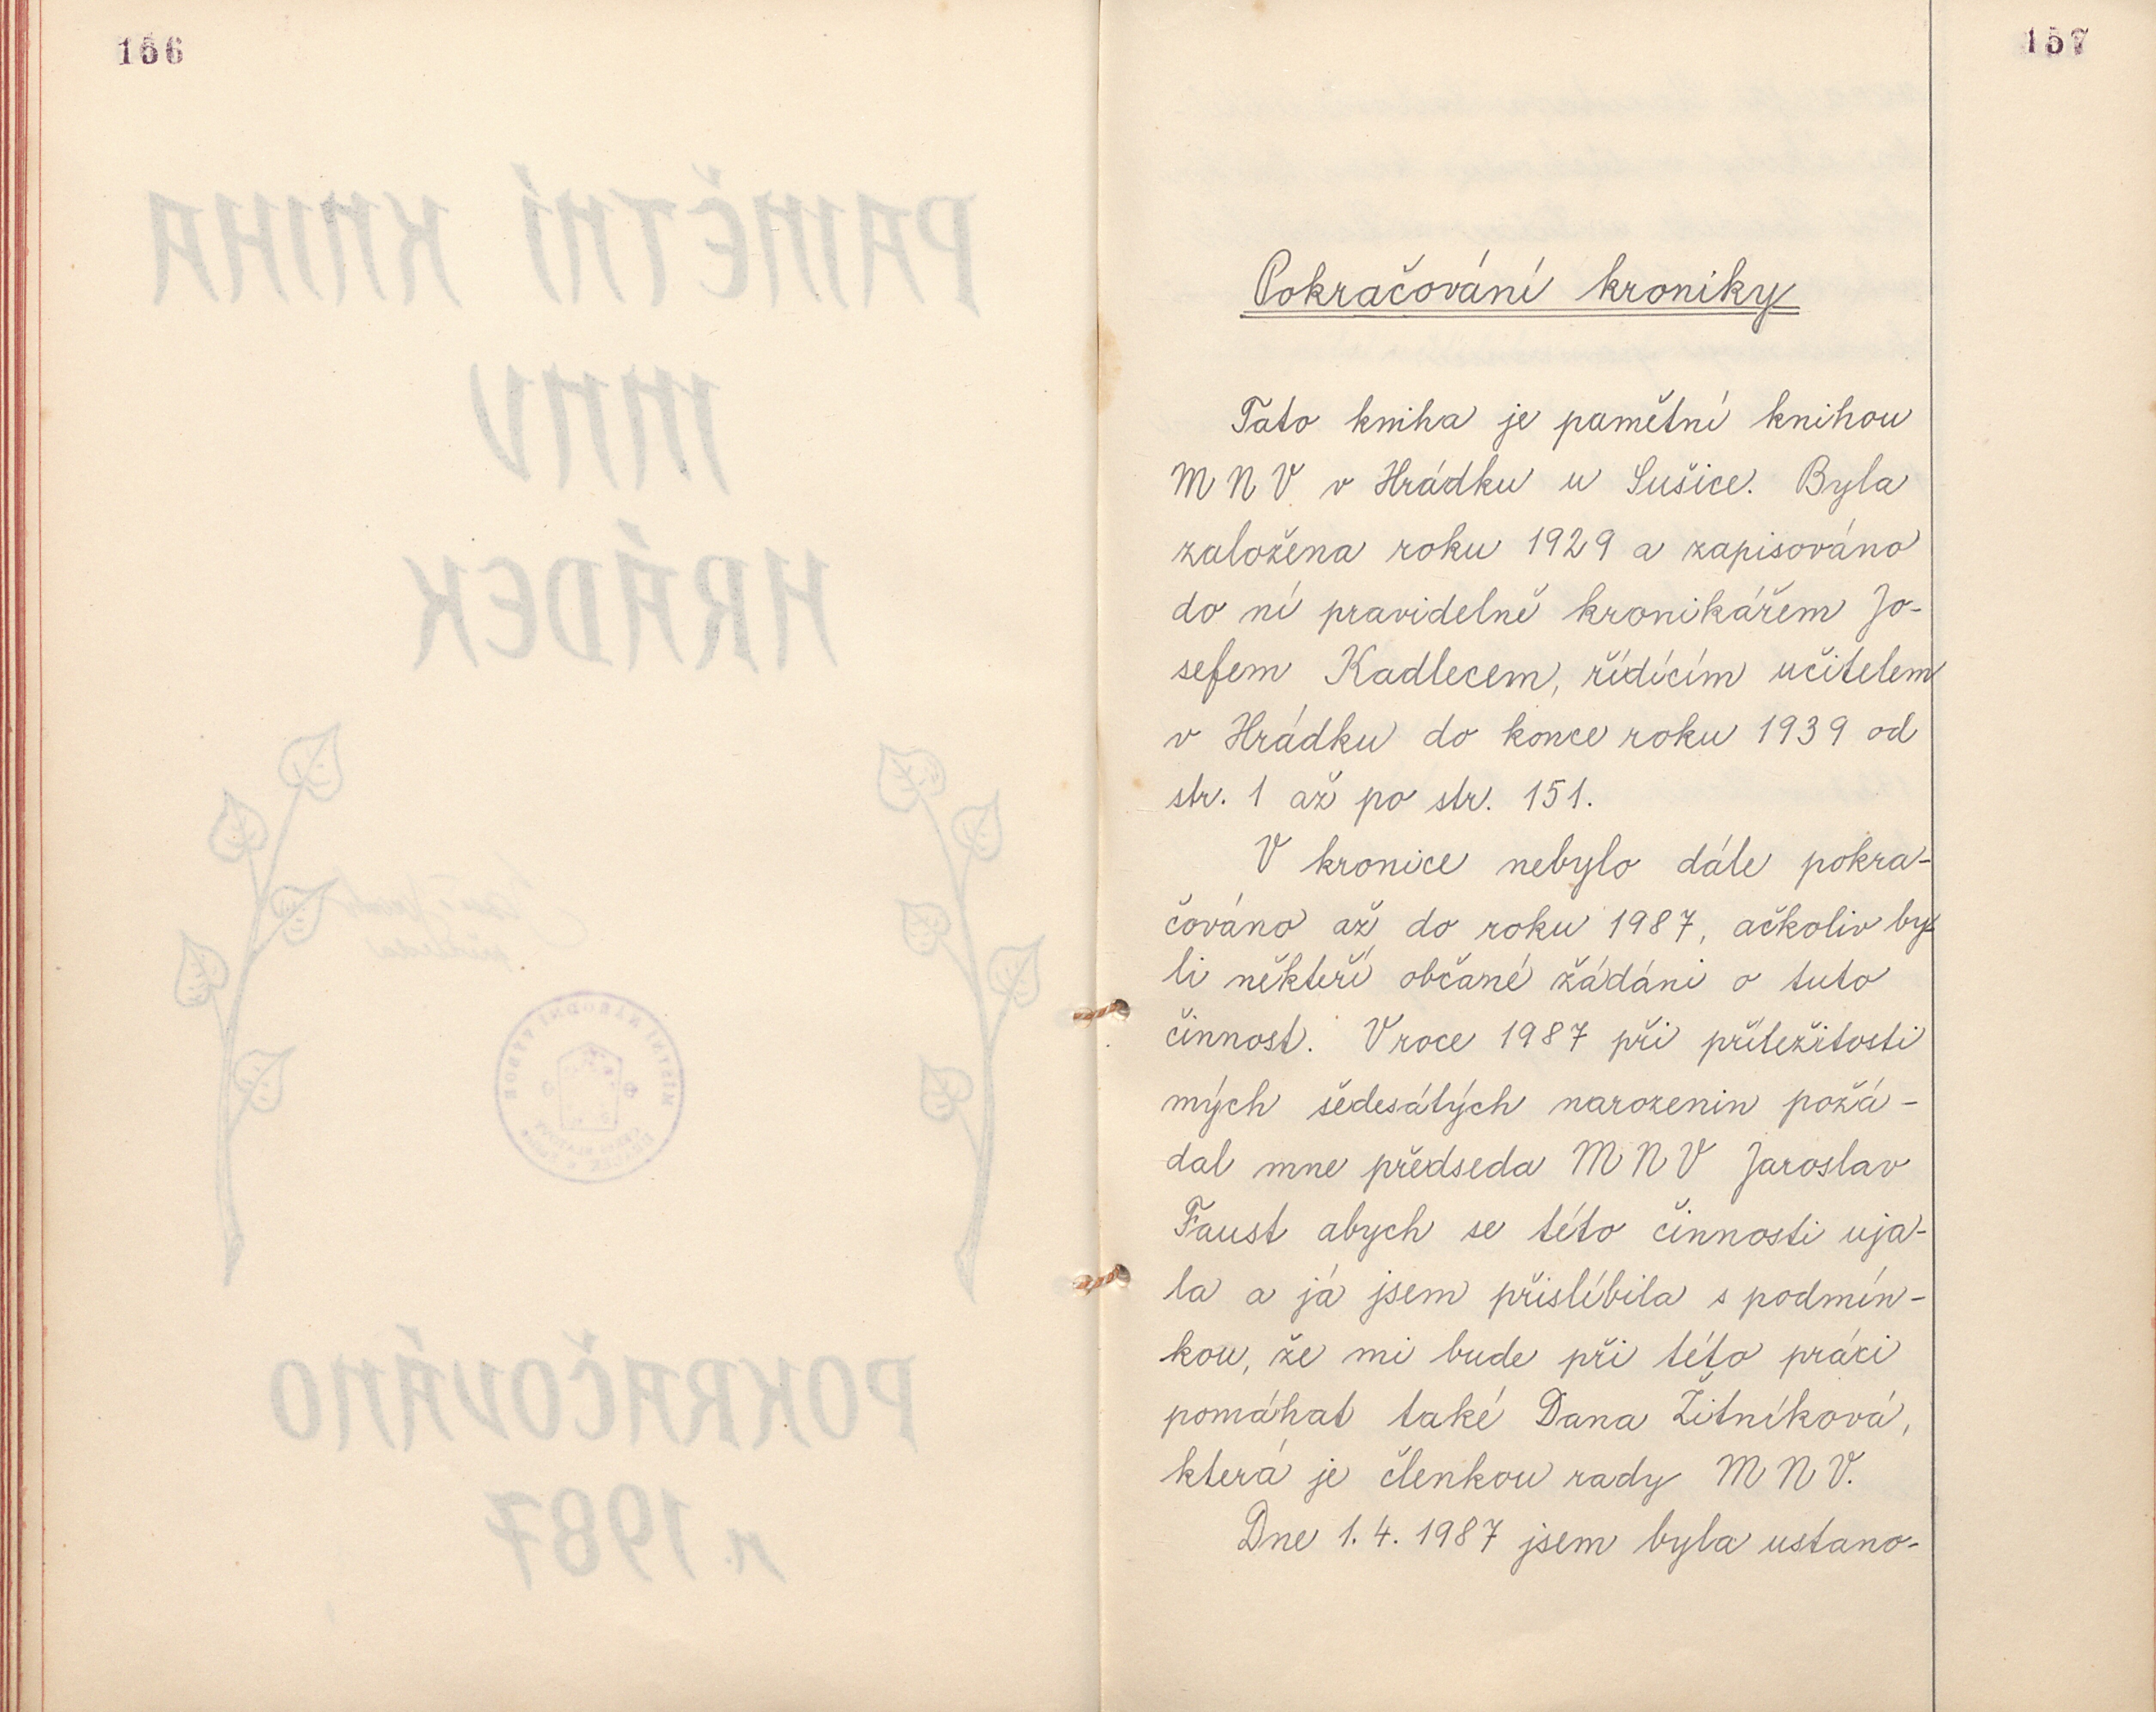 166
PAMĚTNÍ KNIHA
MNV
HRÁDEK
MÍSTNÍ NÁRODNÍ VÝBOR
POKRAČOVÁNO
r. 1987
157
Pokračování kroniky
Tato kniha je pamětní knihou
M N V v Hrádku u Sušice. Byla
založena roku 1929 a zapisováno
do ní pravidelně kronikářem Jo-
sefem Kadlecem, řídícím učitelem
v Hrádku do konce roku 1939 od
str. 1 až po str. 151.
V kronice nebylo dále pokra-
čováno až do roku 1987, ačkoliv by-
li někteří občané žádáni o tuto
činnost. V roce 1987 při příležitosti
mých šedesátých narozenin požá-
dal mne předseda M N V Jaroslav
Faust abych se této činnosti uja-
la a já jsem přislíbila s podmín-
kou, že mi bude při této práci
pomáhat také Dana Žitníková,
která je členkou rady M N V.
Dne 1. 4. 1987 jsem byla ustano-